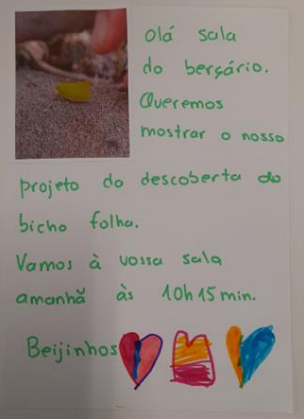 Olá sala
do berçário.
Queremos
mostrar o nosso
projeto do descoberta do
bicho folha.
Vamos à vossa sala
amanhã às 10h15min.
Beijinhos